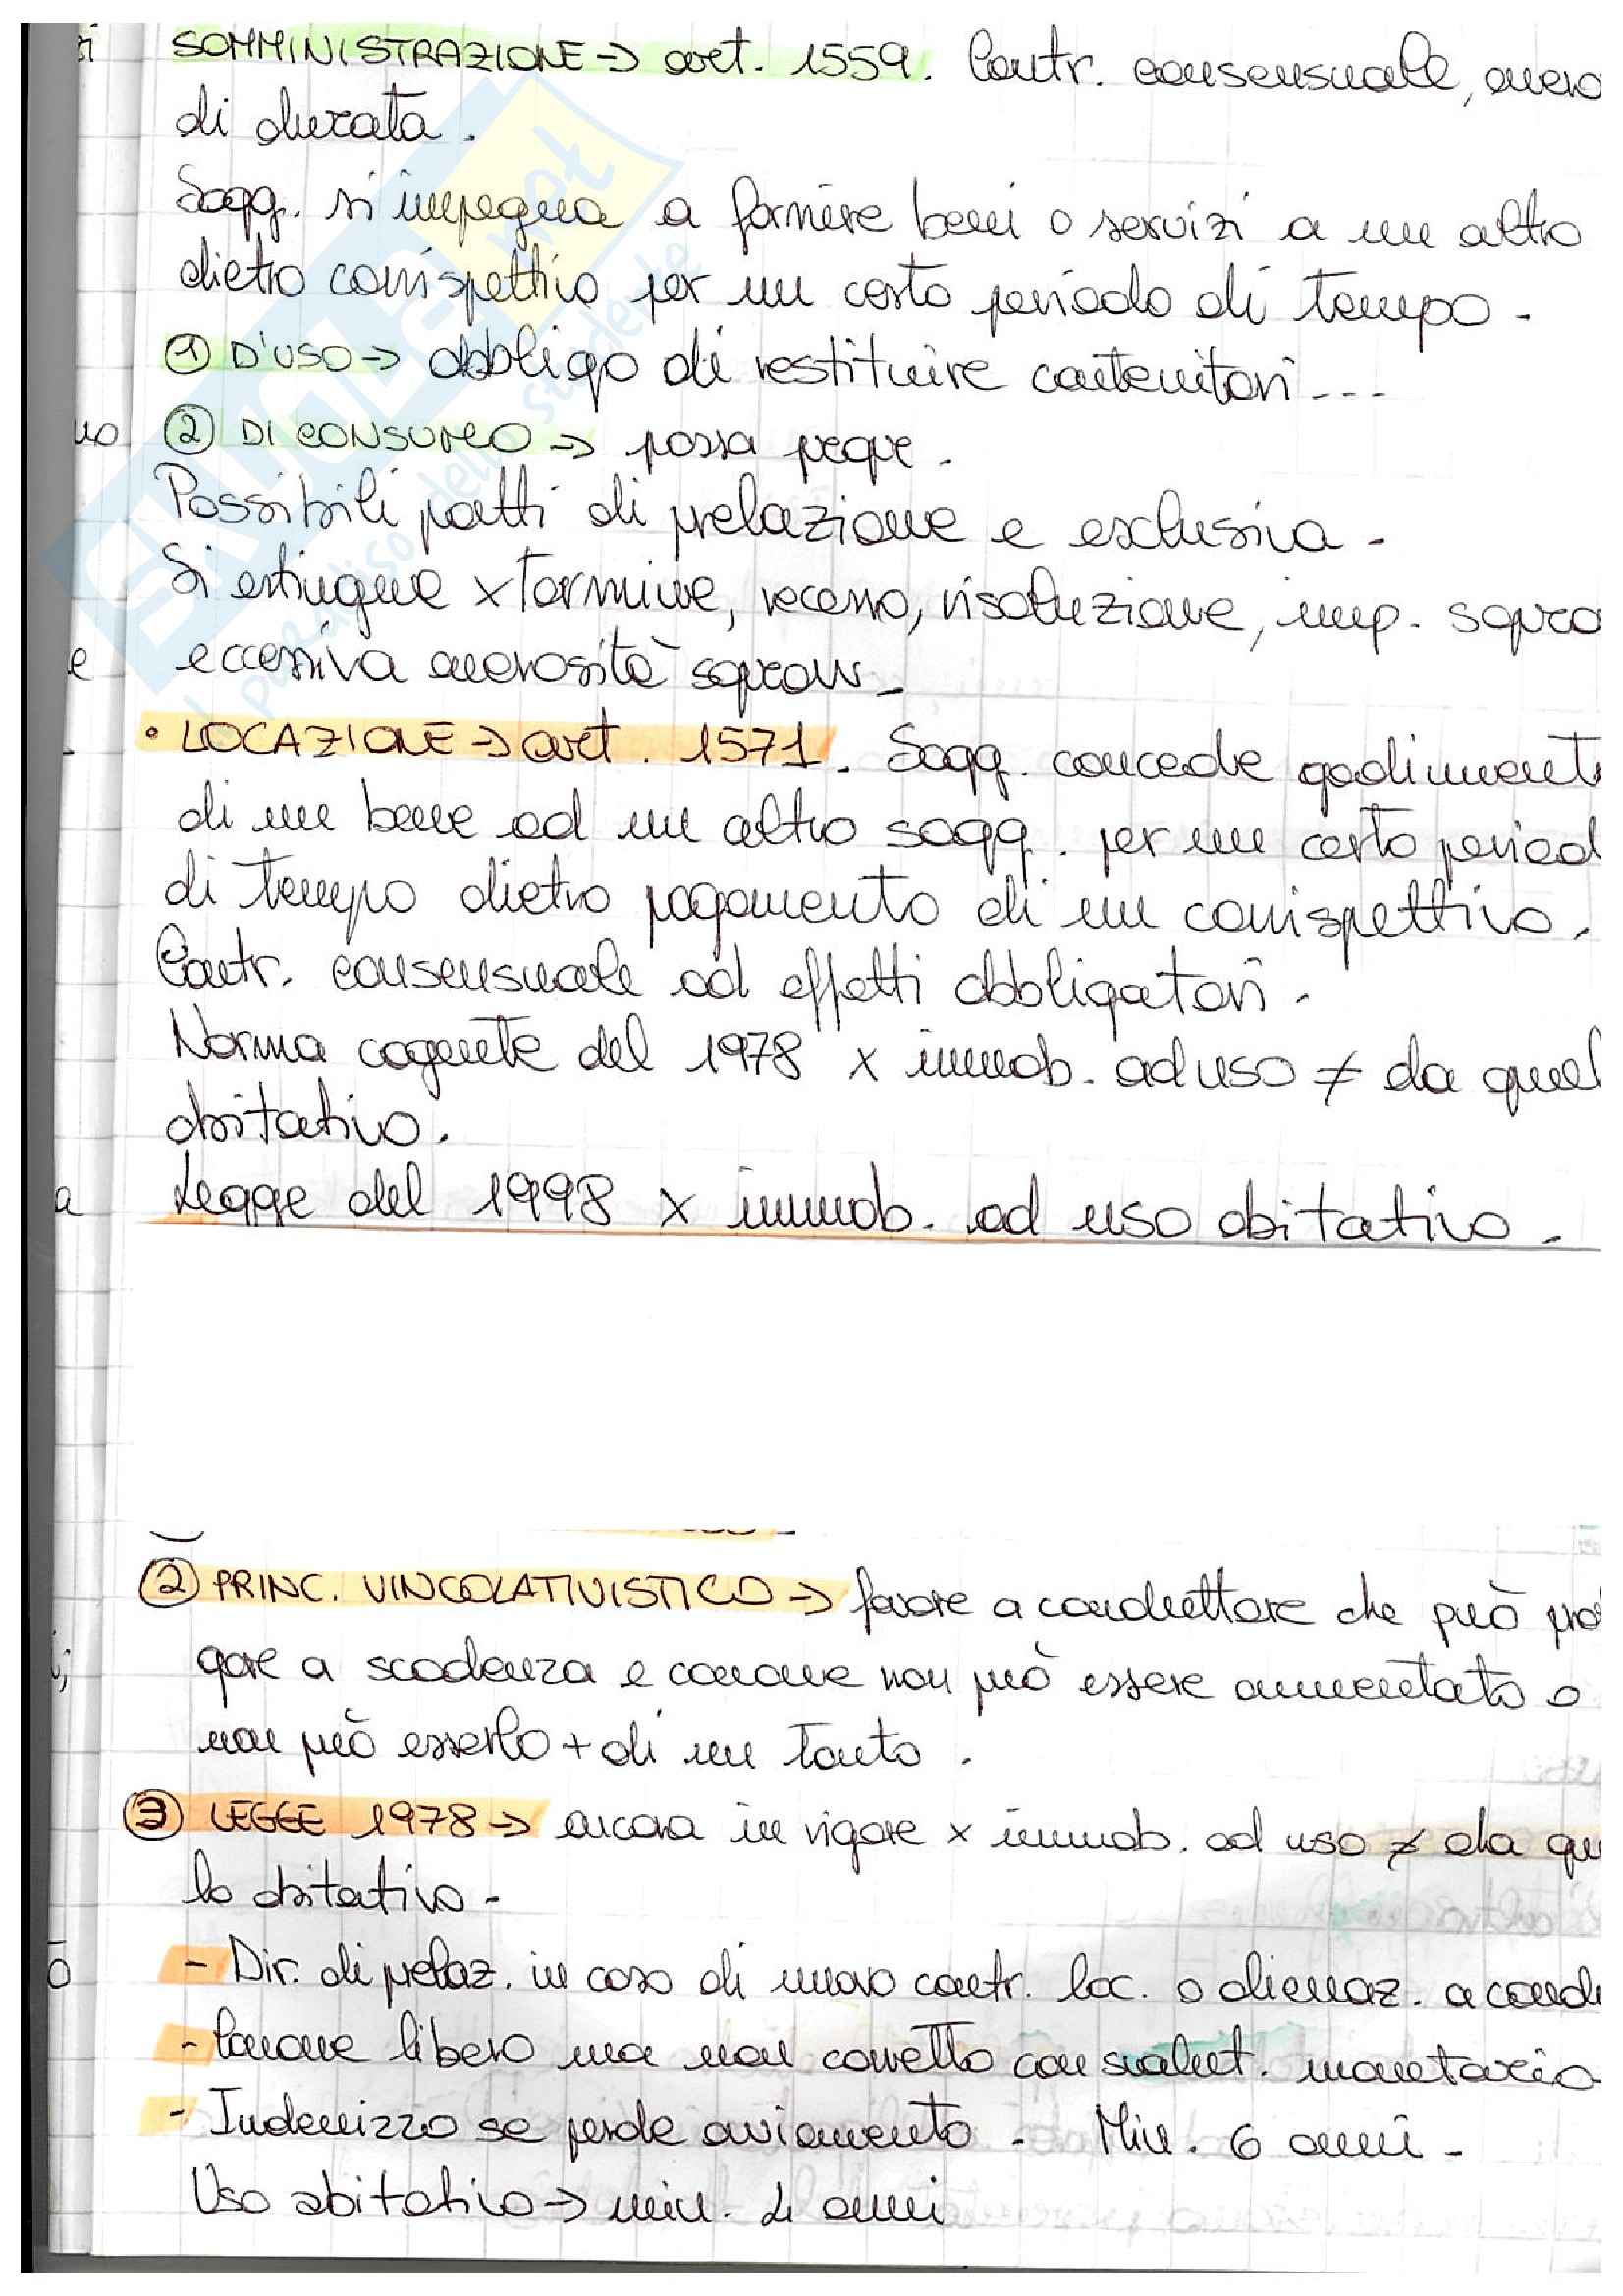 SOMMINISTRAZIONE → art. 1559. Contr. consensuale, onero
di durata.
Sogg. si impegna a fornire beni o servizi a un altro
dietro corrispettivo per un certo periodo di tempo.
① D'USO → obbligo di restituire contenitori...
② DI CONSUMO → possa
Possibili patti di prelazione e esclusiva.
Si estingue x termine, recesso, risoluzione, imp. sopra
eccessiva onerosità soprav.
• LOCAZIONE → art. 1571. Sogg. concede godiment
di un bene ad un altro sogg. per un certo period
di tempo dietro pagamento di un corrispettivo.
Contr. consensuale ad effetti obbligatori.
Norma cogente del 1978 x immob. ad uso ≠ da quel
abitativo.
Legge del 1998 x immob. ad uso abitativo.
② PRINC. VINCOLATIVISTICO → favore a conduttore che può pro
gare a scadenza e canone non può essere aumentato o
non può esserlo + di un tanto.
③ LEGGE 1978 → ancora in vigore x immob. ad uso ≠ da qu
lo abitativo.
- Dir. di prelaz. in caso di nuovo contr. loc. o alienaz. a cond
- Canone libero ma non corretto con svalut. monetaria
- Indennizzo se perde avviamento. Min. 6 anni.
Uso abitativo → min. 4 anni
SKUOLA.net
il paradiso dello studente